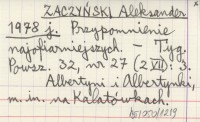 ZACZYŃSKI Aleksander
1978 j. Przypomnienie
najofiarniejszych. – Tyg.
Powsz. 32, nr 27 (2 VII) : 3.
Albertyni i Albertynki,
m. in. na Kalatówkach.